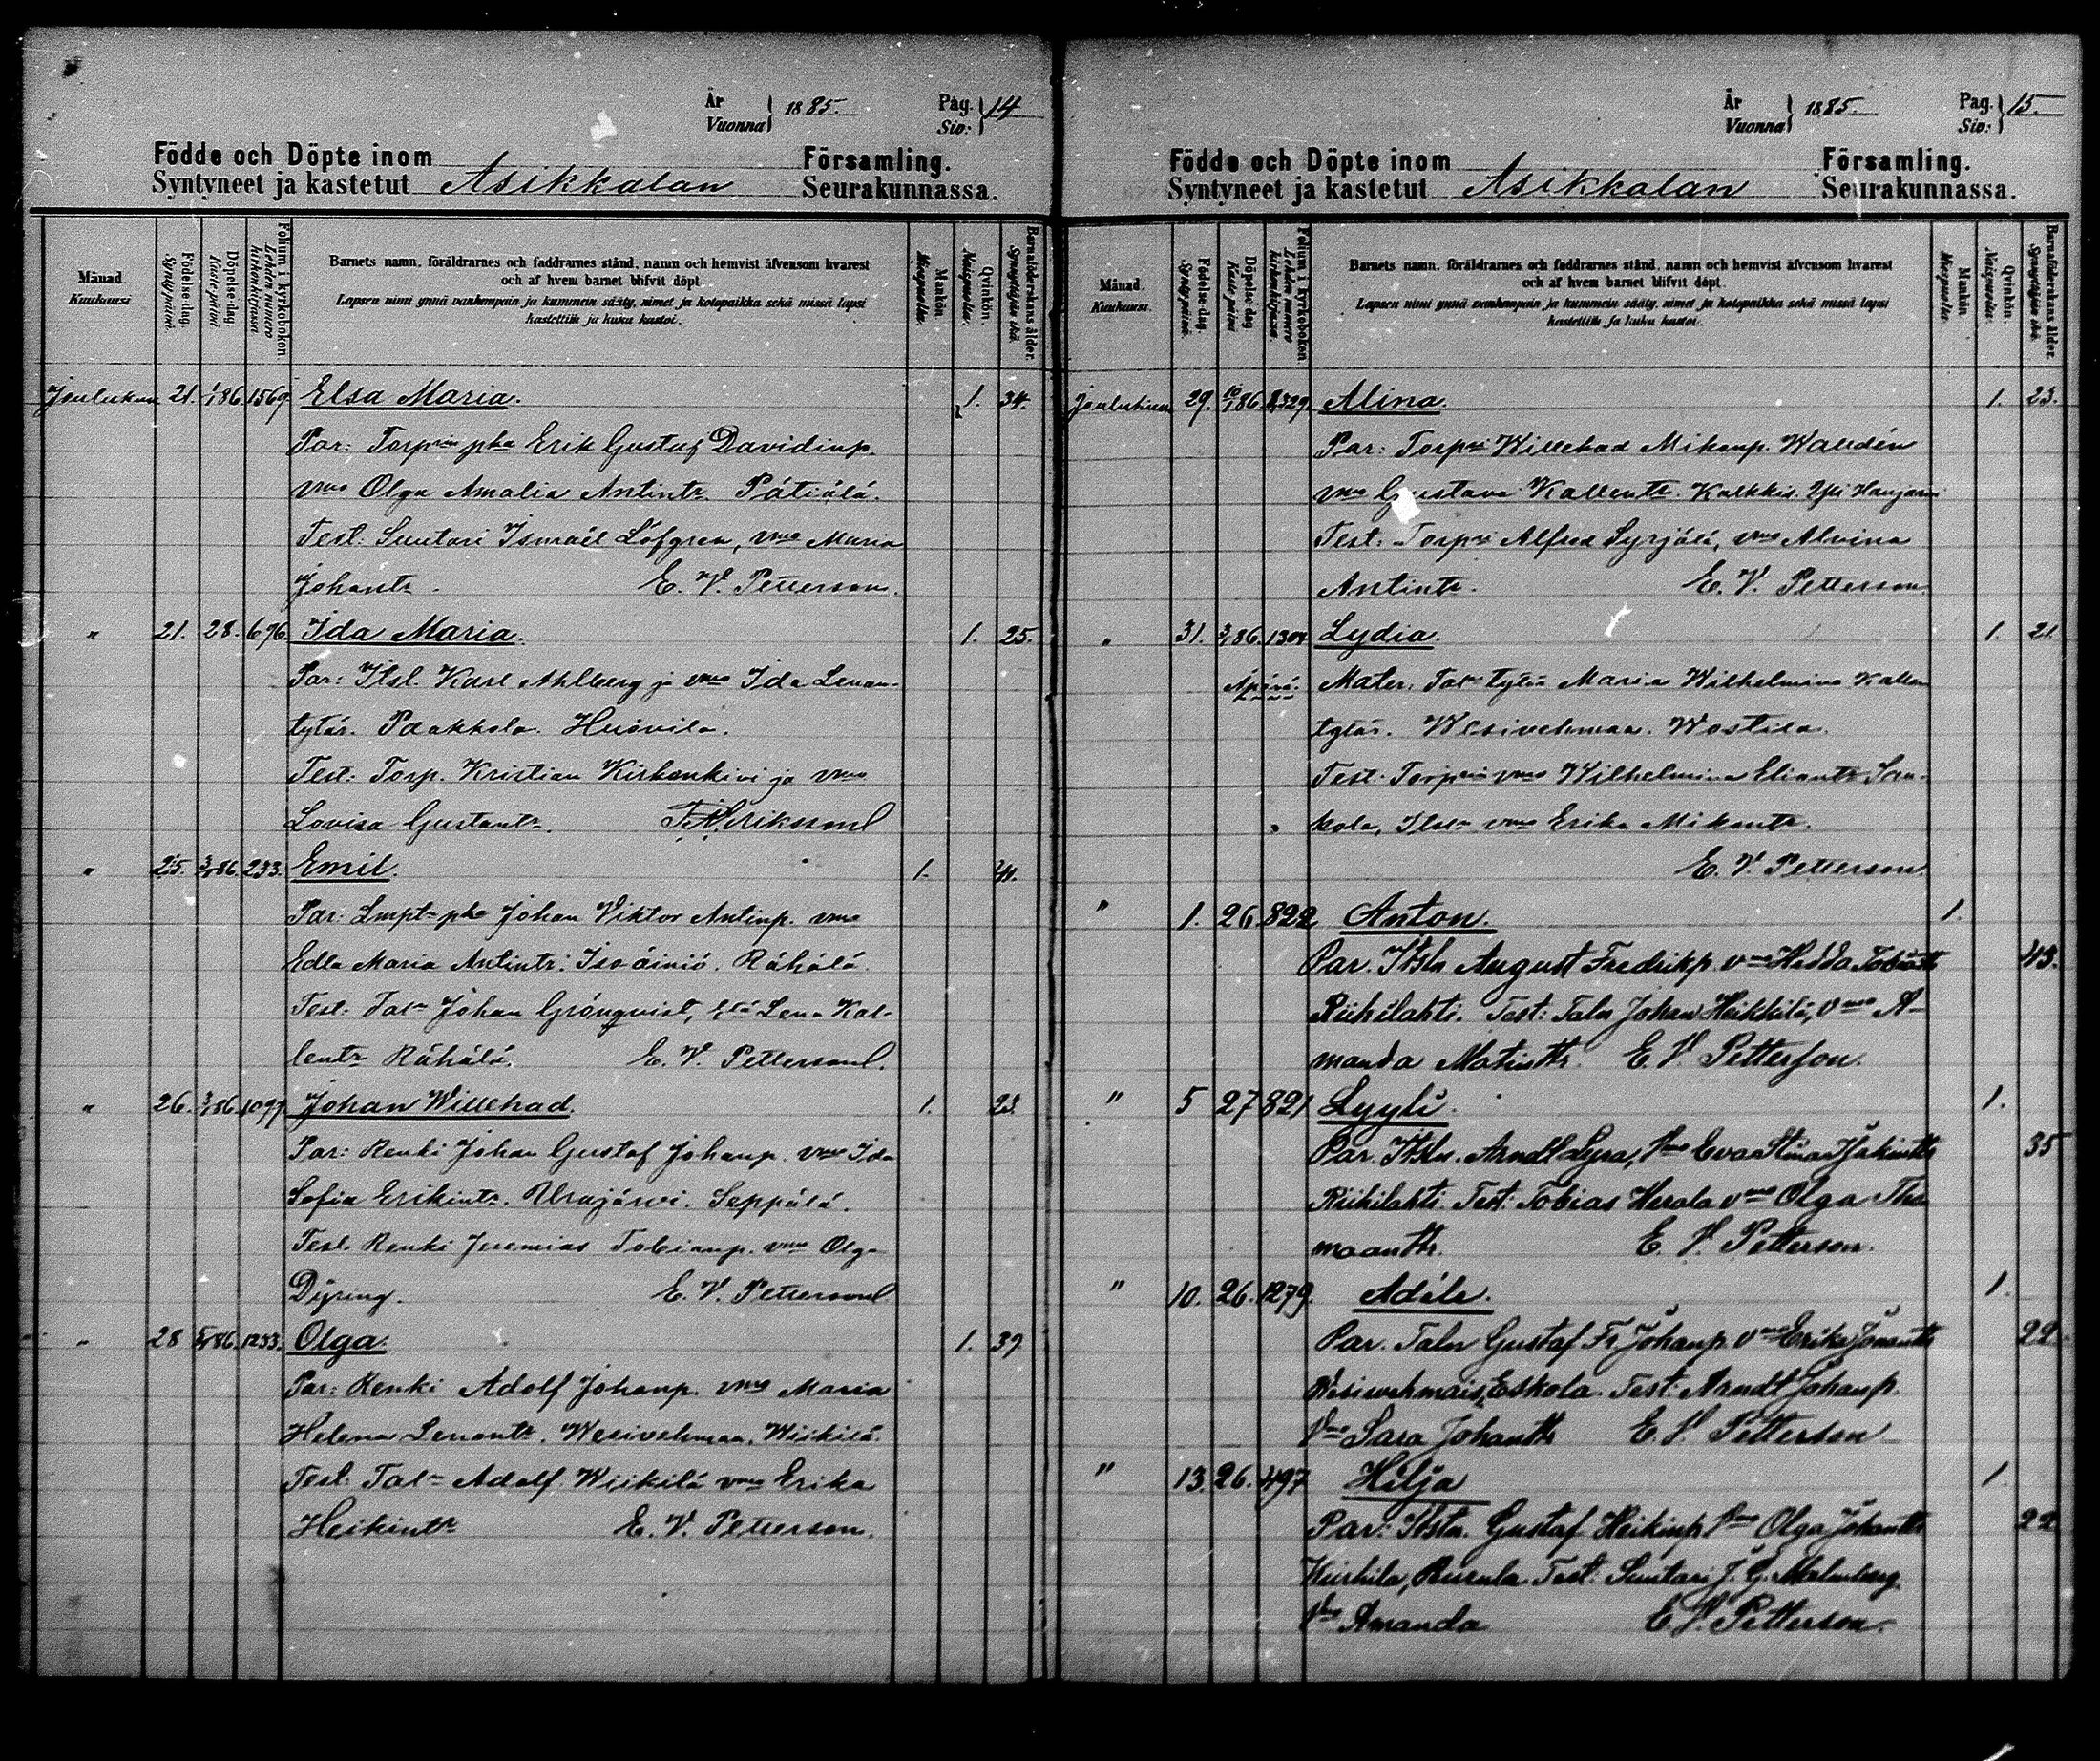 År
Vuonna } 1885.
Pag.
Siv: } 14.
Födde och Döpte inom
Syntyneet ja kastetut Asikkalan
Församling.
Seurakunnassa.
Månad.
Kuukausi.
Födelse-dag.
Syntymäpäivä.
Döpelse-dag
Kaste päivä
Folium i kyrkoboken.
Lehden numero kirkonkirjassa
Barnets namn, föräldrarnes och faddrarnes stånd, namn och hemvist äfvensom hvarest
och af hvem barnet blifvit döpt.
Lapsen nimi ynnä vanhempain ja kummein sääty, nimet ja kotopaikka sekä missä lapsi
kastettiin ja kuka kastoi.
Mankön.
Miespuolia.
Qvinkön.
Naispuolia.
Barnaföderskans ålder.
Synnyttäjän ikä.
Joulukuu 21. 1/1 86. 1569. Elsa Maria. 1. 34.
Par: Torprin pka Erik Gustaf Davidinp.
vmo Olga Amalia Antintr. Pätiälä.
Test: Suutari Ismael Löfgren, vmo Maria
Johantr. E. V. Petterson.
" 21. 28. 676. Ida Maria. 1. 25.
Par: Itsl. Karl Ahlberg ja vmo Ida Lenan-
tytär. Paakkola. Husvila.
Test: Torp. Kristian Kirkonkivi ja vmo
Lovisa Gustantr. Erikssonl
" 25. 3/1 86. 233. Emil. 1. 40.
Par: Lmpt pka Johan Viktor Antinp. vmo
Edla Maria Antintr. Isoäiniö. Rähälä.
Test: Taln Johan Grönqvist, Lena Kal-
lentr Rähälä. E. V. Pettersonl.
" 26. 3/1 86. 1077. Johan Willehad. 1. 23.
Par: Renki Johan Gustaf Johanp. vmo Ida
Sofia Erikintr. Urajärvi. Seppälä.
Test. Renki Jeremias Tobianp. vmo Olga
Dyring. E. V. Pettersonl
" 28 5/1 86. 1233. Olga. 1. 37
Par: Renki Adolf Johanp. vmo Maria
Helena Lenantr. Wesivehmaa. Wiikilä.
Test: Taln Adolf Wiikilä vmo Erika
Heikintr E. V. Petterson.
År
Vuonna } 1885.
Pag.
Siv: } 15.
Födde och Döpte inom
Syntyneet ja kastetut Asikkalan
Församling.
Seurakunnassa.
Månad.
Kuukausi.
Födelse-dag.
Syntymäpäivä.
Döpelse-dag
Kaste päivä
Folium i kyrkoboken.
Lehden numero kirkonkirjassa
Barnets namn, föräldrarnes och faddrarnes stånd, namn och hemvist äfvensom hvarest
och af hvem barnet blifvit döpt.
Lapsen nimi ynnä vanhempain ja kummein sääty, nimet ja kotopaikka sekä missä lapsi
kastettiin ja kuka kastoi.
Mankön
Miespuolia.
Qvinkön.
Naispuolia.
Barnaföderskans ålder.
Synnyttäjän ikä.
Joulukuu 29. 10/1 86. 329. Alina. 1. 23.
Par: Torpri Willehad Mikonp. Walldén
vmo Gustava Kallentr. Kalkkis.
Test: Torpri Alfred Syrjälä, vmo Alvina
Antintr. E. V. Petterson
" 31. 3/1 86. 1304 Lydia. 1. 21.
Äpärä. Mater: Taln tytär Maria Wilhelmina Kallen
tytär. Wesivehmaa. Wostila.
Test: Torprin vmo Wilhelmina Eliantr San-
kola, Itsln vmo Erika Mikontr.
E. V. Petterson
" 1. 26. 822 Anton. 1.
Par. Itsln August Fredrikp. vmo Hedda Tobiantr 43.
Riihilahti. Test: Taln Johan Heikkilä, vmo A-
manda Matintr. E. V. Petterson.
" 5 27 821 Lyyli. 1.
Par. Itsln. Arndt Lyra, vmo Eva Stina Jåkintr 35
Riihilahti. Test: Tobias Herala vmo Olga Tho
maantr. E. V. Petterson.
" 10. 26. 1279. Adéle. 1.
Par. Taln Gustaf Fr. Johanp. vmo Erika Jonantr 22
Wesiwehmais, Eskola. Test: Arndt Johanp.
vmo Sara Johantr E. V. Petterson
" 13. 26. 497 Hilja 1.
Par: Itsln. Gustaf Heikinp. vmo Olga Johantr 22
Kurhila, Rusula. Test: Suutari J. G. Malmberg.
vmo Amanda E. V. Petterson.